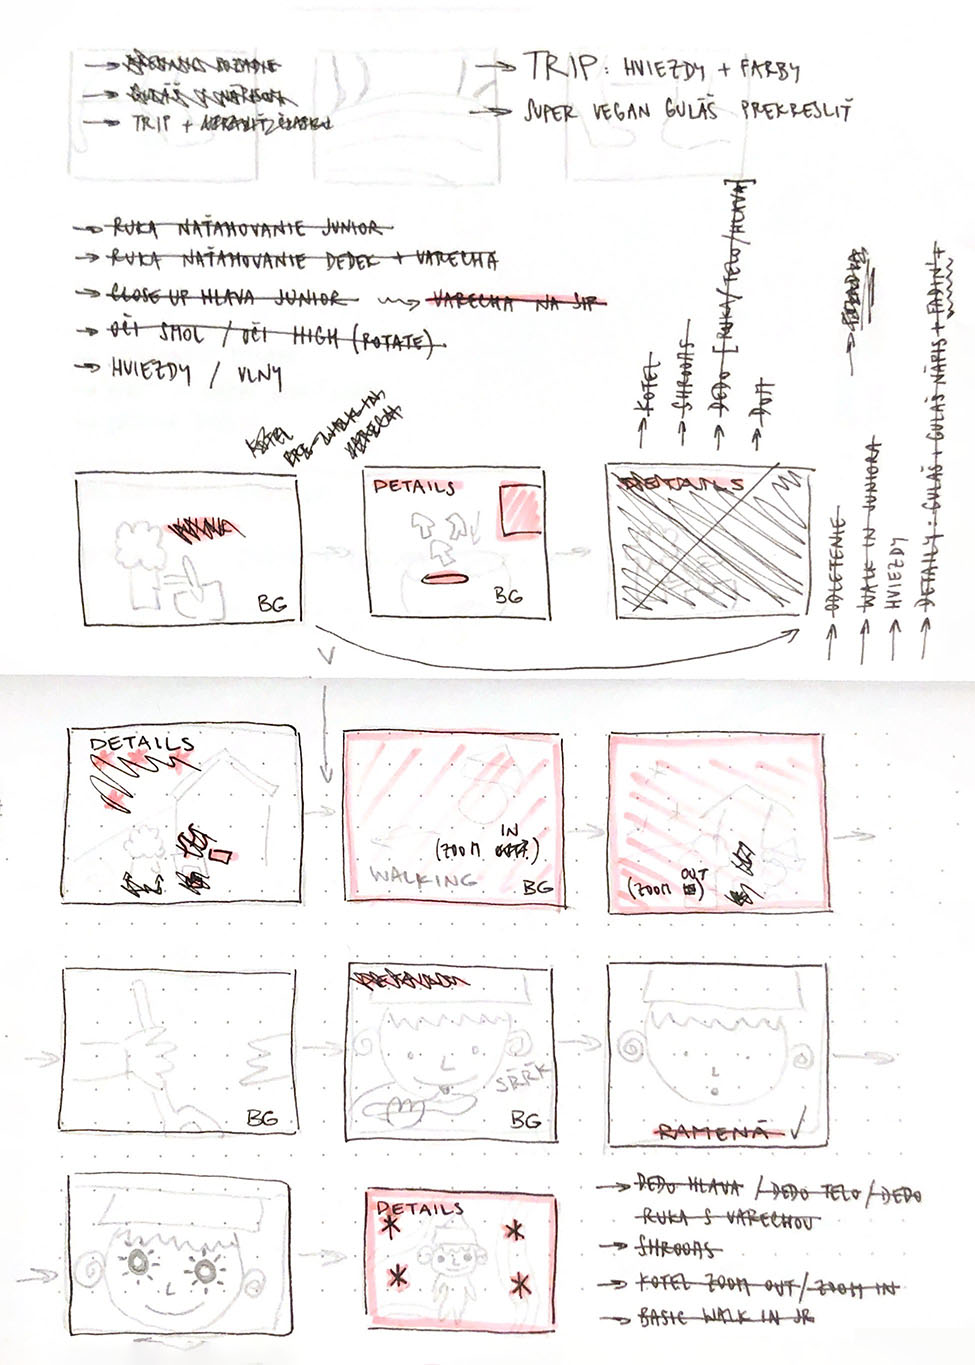 → TRIP +
→ TRIP: HVIEZDY + FARBY
→ SUPER VEGAN GULÁŠ PREKRESLIŤ
→ RUKA NAŤAHOVANIE JUNIOR
→ RUKA NAŤAHOVANIE DEDEK + VARECHA
→ CLOSE UP HLAVA JUNIOR → VARECHA NA ŠÍR
→ OČI SMOL / OČI HIGH (ROTATE)
→ HVIEZDY / VLNY
→ KOTEL
→ SHROOMS
→ DEDO [RUKA/TELO/HLAVA]
→ DOM
KOTEL
BG
DETAILS
BG
DETAILS
→ ODLETENIE
→ WALK IN JUNIORA
→ HVIEZDY
→ DETAILY: GULÁŠ + GULÁŠ NÁPIS + FADIN +
DETAILS
(ZOOM IN
WALKING
BG
(ZOOM OUT)
BG
SŔŔK
BG
RAMENÁ ✓
DETAILS
→ DEDO HLAVA / DEDO TELO / DEDO
RUKA S VARECHOU
→ SHROOMS
→ KOTEL ZOOM OUT / ZOOM IN
→ BASIC WALK IN JR